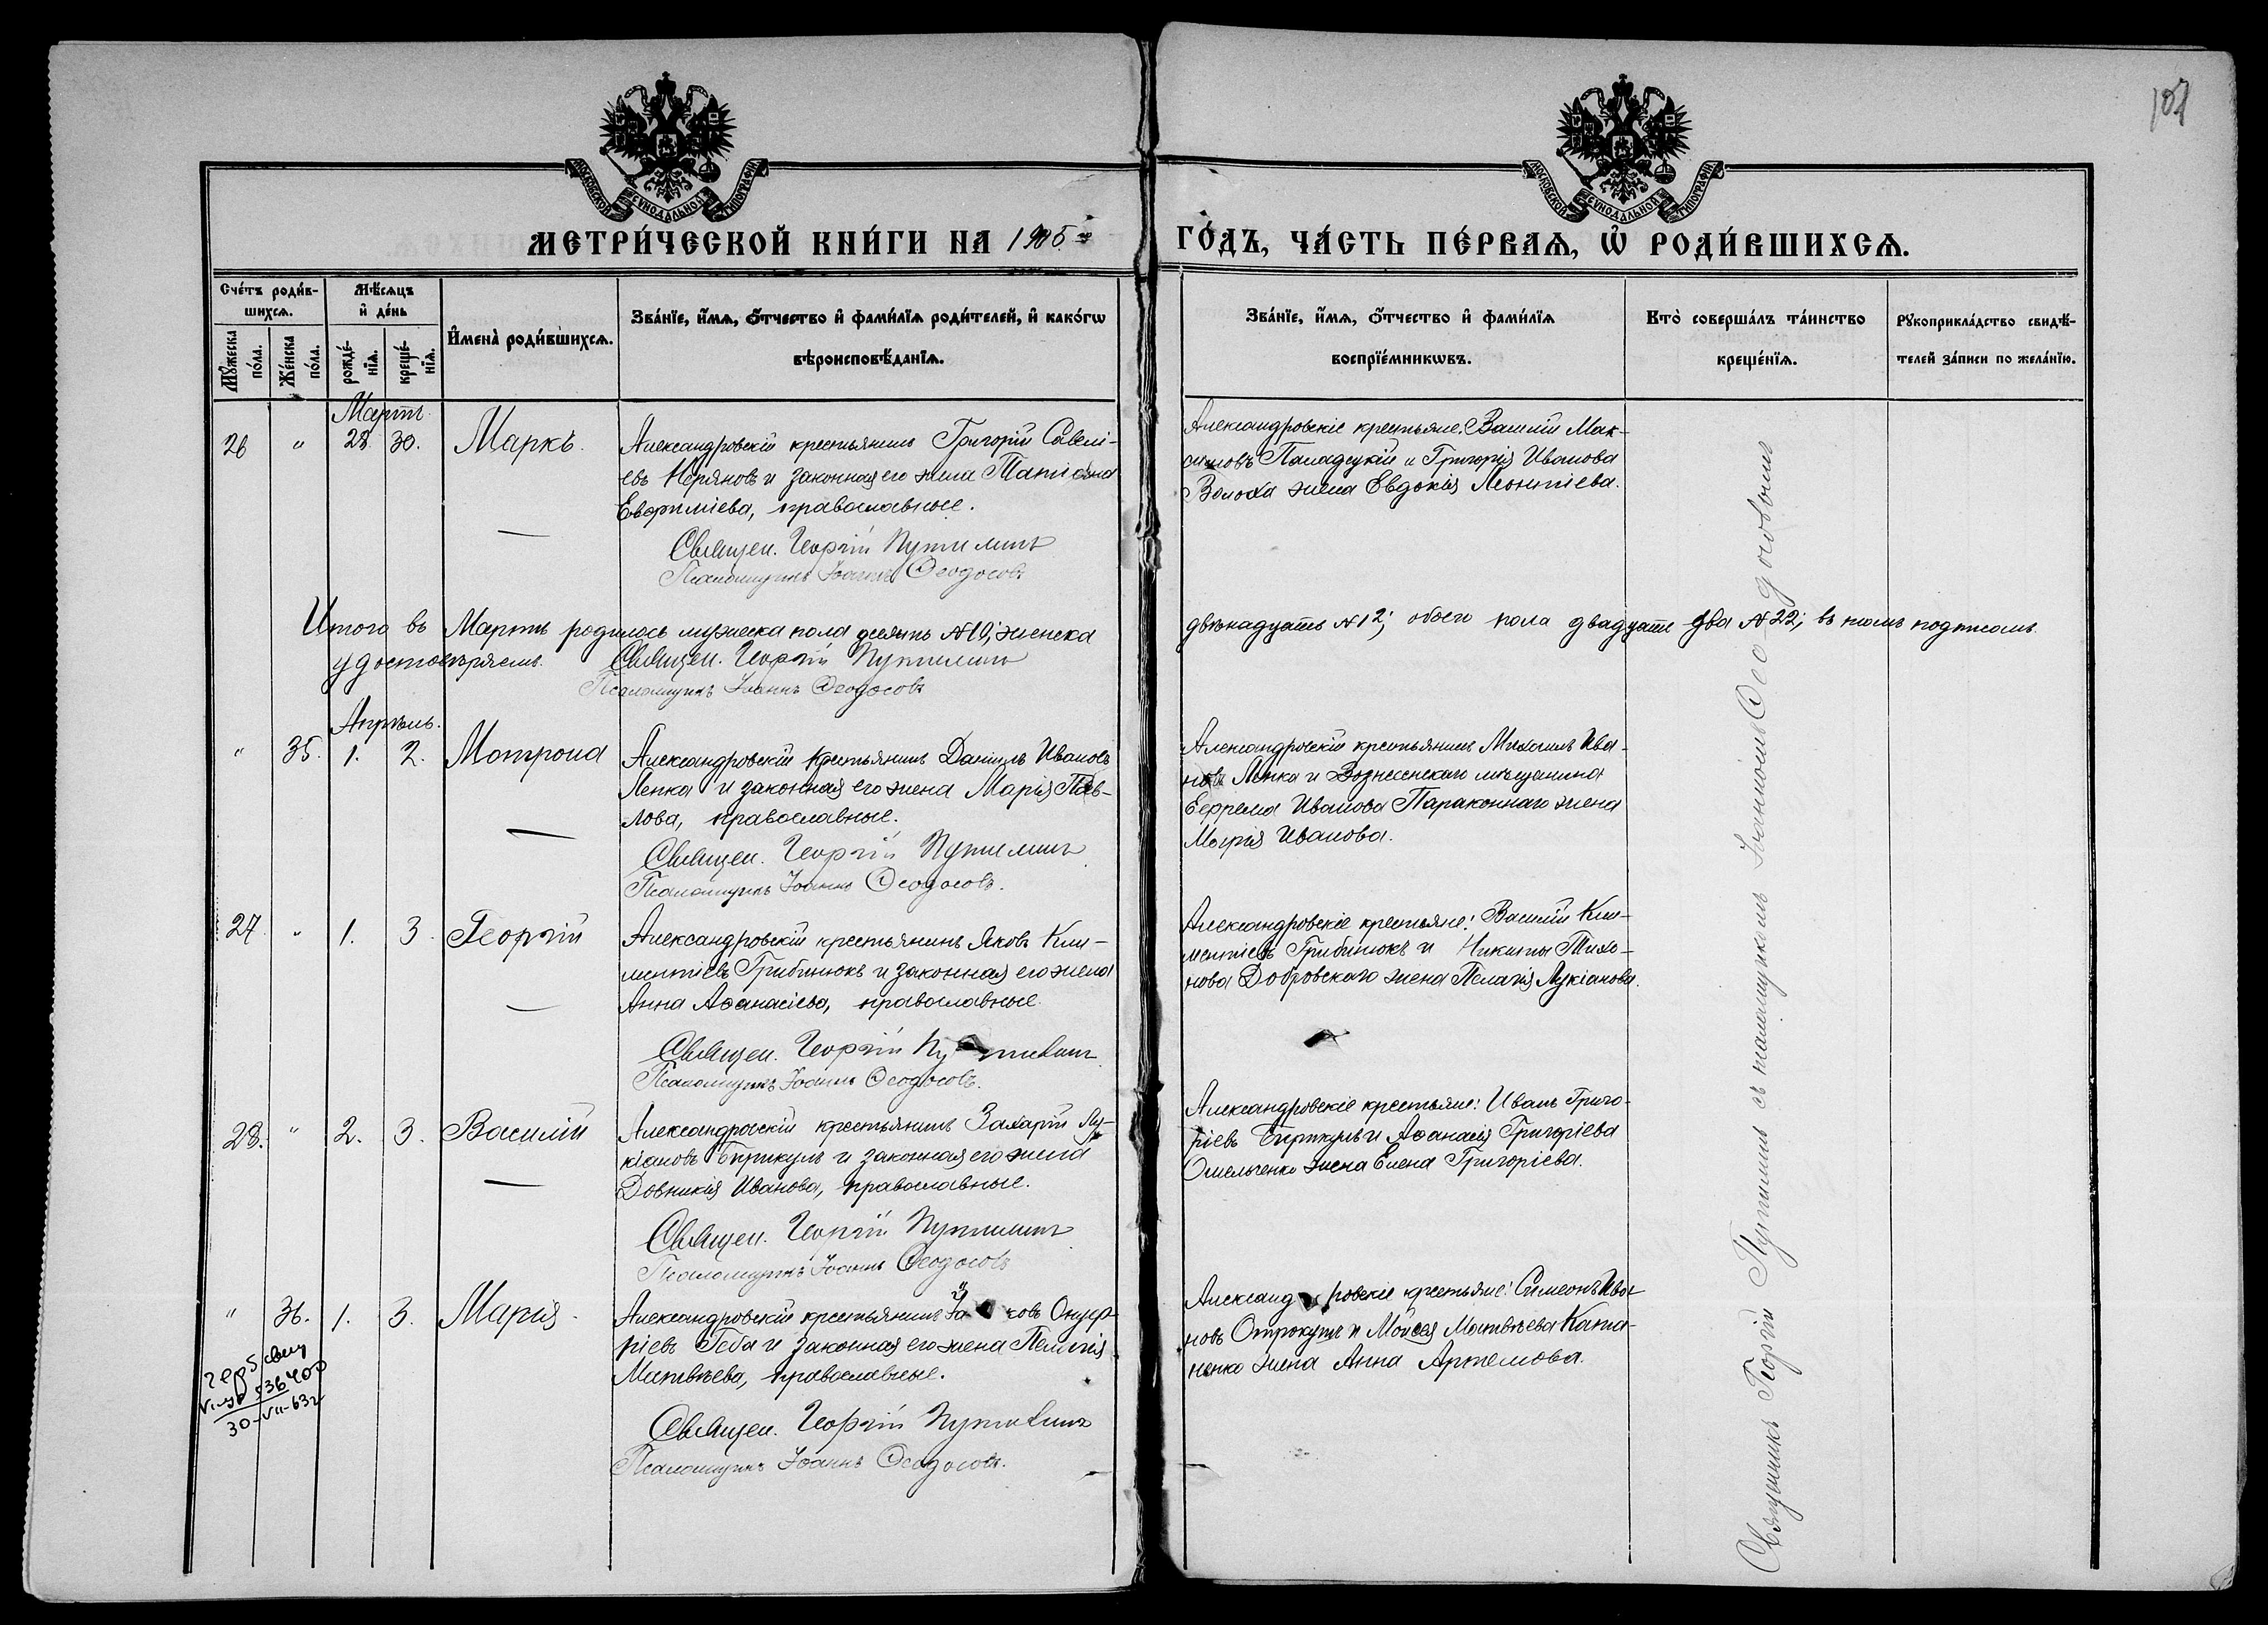 107
МОСКОВСКОЙ СУНОДАЛЬНОЙ ТИПОГРАФІИ
МОСКОВСКОЙ СУНОДАЛЬНОЙ ТИПОГРАФІИ
МЕТРИ́ЧЕСКОЙ КНИ́ГИ НА 1905
ГО́ДЪ, ЧА́СТЬ ПЕ́РВАѦ, Ѡ҆ РОДИ́ВШИХСѦ.
Сче́тъ роди́в-
шихсѧ.
Мѹ́жеска по́ла.
Же́нска по́ла.
Мѣ́сѧцъ
и҆ де́нь
рожде́-нїѧ.
креще́-нїѧ.
И҆мена̀ роди́вшихсѧ.
Зва́нїе, и҆́мѧ, ѻ҆́тчество и҆ фами́лїѧ роди́телей, и҆ како́гѡ
вѣроисповѣ́данїѧ.
Зва́нїе, и҆́мѧ, ѻ҆́тчество и҆ фами́лїѧ
воспрїе́мникѡвъ.
Кто̀ соверша́лъ та́инство
креще́нїѧ.
Рѹкоприкла́дство свидѣ́-
телей за́писи по жела́нїю.
Мартъ.
26 " 28. 30. Маркъ.
Александровскій крестьянинъ Григорій Савелі-
евъ Моряновъ и законная его жена Татіана
Евфиміева, православные.
Священ. Георгій Путилинъ
Псаломщикъ Іоаннъ Ѳеодосовъ
Александровскіе крестьяне: Василій Мак-
симовъ Паладецкій и Григорія Иванова
Волоха жена Евдокія Леонтіева.
Итого въ Мартѣ родилось мужеска пола десять №10; женска
двѣнадцать №12; обоего пола двадцать два №22; въ томъ подписомъ
удостовѣряемъ. Священ. Георгій Путилинъ
Псаломщикъ Іоаннъ Ѳеодосовъ
Апрѣль.
" 35. 1. 2. Мотрона
Александровскій крестьянинъ Даніилъ Ивановъ
Лепка и законная его жена Марія Пав-
лова, православные.
Священ. Георгій Путилинъ
Псаломщикъ Іоаннъ Ѳеодосовъ.
Александровскій крестьянинъ Михаилъ Ива-
новъ Лепка и Вознесенскаго мѣщанина
Ефрема Иванова Параконнаго жена
Марія Иванова.
27 " 1. 3. Георгій
Александровскій крестьянинъ Яковъ Кли-
ментіевъ Грибинюкъ и законная его жена
Анна Аѳанасіева, православные.
Священ. Георгій Путилинъ
Псаломщикъ Іоаннъ Ѳеодосовъ.
Александровскіе крестьяне: Василій Кли-
ментіевъ Грибинюкъ и Никиты Тихо-
нова Добровскаго жена Пелагія Лукіанова.
28. " 2. 3. Василій
Александровскій крестьянинъ Захарій Лу-
кіановъ Бурикулъ и законная его жена
Довникія Иванова, православные.
Священ. Георгій Путилинъ
Псаломщикъ Іоаннъ Ѳеодосовъ
Александровскіе крестьяне: Иванъ Григо-
ріевъ Бирикулъ и Аѳанасія Григоріева
Омельченко жена Елена Григоріева.
" 36. 1. 3. Марія.
Александровскій крестьянинъ ковъ Онуф-
ріевъ Геба и законная его жена Пелагія
Матвѣева, православные.
Священ. Георгій Путилинъ
Псаломщикъ Іоаннъ Ѳеодосовъ.
Александровскіе крестьяне: Симеонъ Ива-
новъ Отрокулъ и Мойсея Матвѣева Капа-
ненко жена Анна Артемова.
536400
30-VII-63г
Священникъ Георгій Путилинъ съ псаломщикомъ Іоанномъ Ѳеодосовымъ